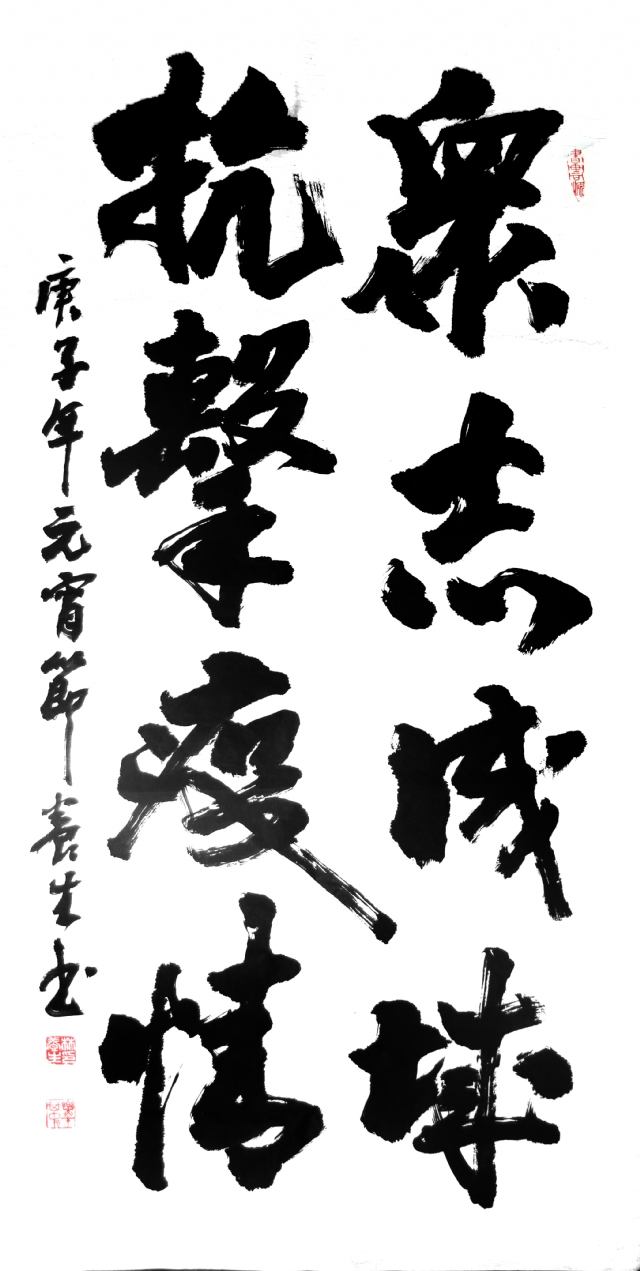 眾志成城
抗擊疫情
庚子年元宵節養生书